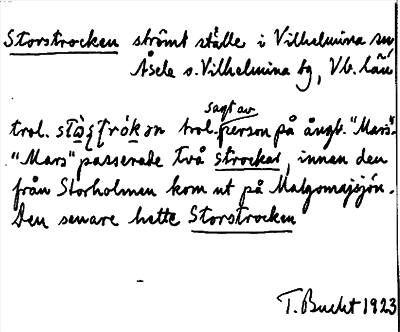 Storstrocken strömt ställe i Vilhelmina sn
Åsele o. Vilhelmina tg, Vb. län
sagt av
trol. person på ångb. "Mars".
"Mars" passerade två strockar, innan den
från Storholmen kom ut på Malgomajsjön.
Den senare hette Storstrocken
T. Bucht 1923